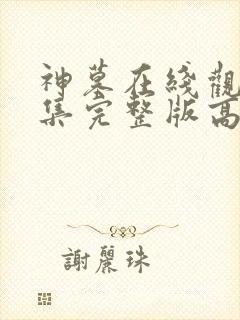 神墓在綫觀
集完整版高
謝麗珠